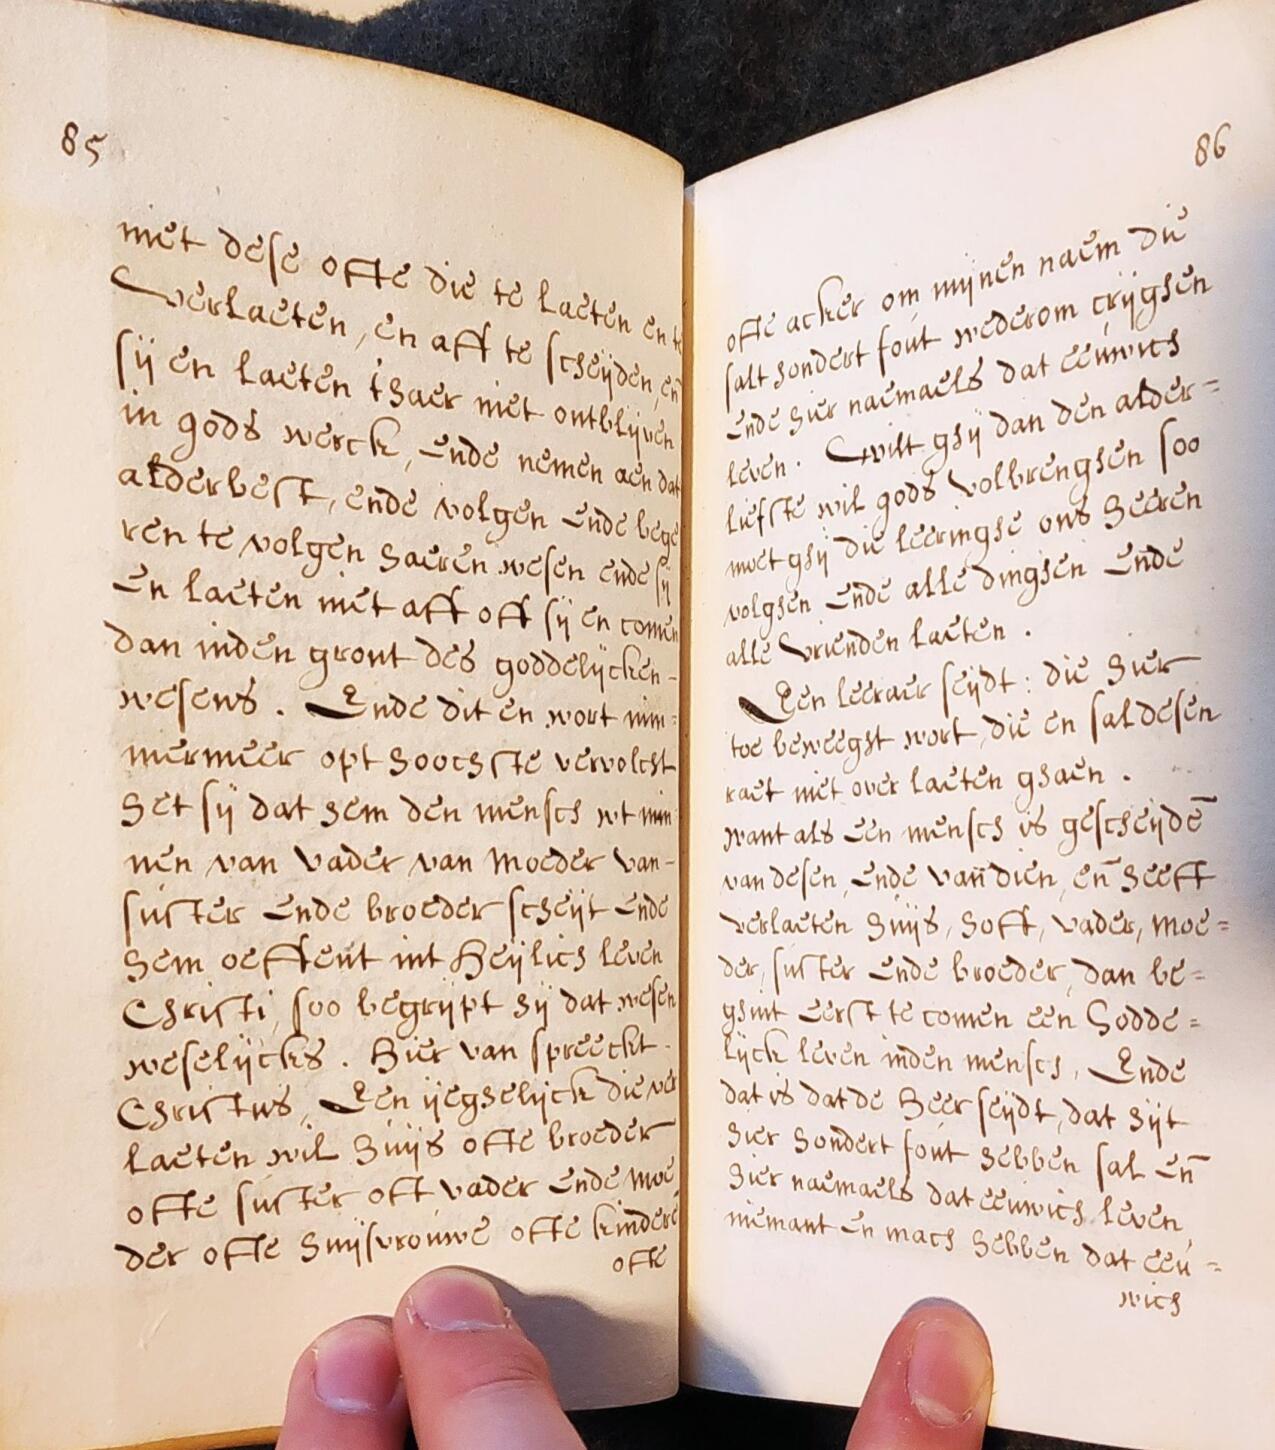 85
met dese ofte die te laeten en te
Verlaeten, en aff te scheijden, en
sij en laeten thaer niet ontblijven
in gods werck, Ende nemen aen dat
alderbest, ende volgen Ende bege
ren te volgen haeren wesen ende sij
En laeten niet aff off sij en comen
dan inden gront des goddelijcken-
wesens. Ende dit en wort nim=
mermeer opt hoochste vervolcht
het sij dat hem den mensch wt min
nen van Vader van Moeder Van-
suster Ende broeder scheijt Ende
hem oeffent int Heijlich leven
Christi, soo begrijpt hij dat wesen
weselijcks. Hier van spreeckt.
Christus, Een ijeghelijck die ver
laeten wil huijs ofte broeder
ofte suster oft vader Ende Moe
der ofte huijsvrouwe ofte kindere
ofte
86
ofte acker om mijnen naem die
salt hondert fout wederom crijghen
Ende hier naemaels dat eeuwich
leven. Wilt ghij dan den alder=
liefste wil gods Volbrenghen soo
moet ghij die leeringhe ons heeren
volghen Ende alle dinghen Ende
alle Vrienden laeten.
Een leeraer seijdt: die hier
toe beweeght wort, die en sal desen
raet niet over laeten ghaen.
want als Een mensch is gescheijdē
van desen, Ende Van dien, eñ heeft
Verlaeten huijs, hoft, vader, Moe=
der, suster Ende broeder, dan be=
ghint Eerst te comen een Godde=
lijck leven inden mensch, Ende
dat is dat de Heer seijdt, dat hijt
hier hondert fout hebben sal eñ
hier naemaels dat eeuwich leven,
niemant En mach hebben dat eeu=
wich